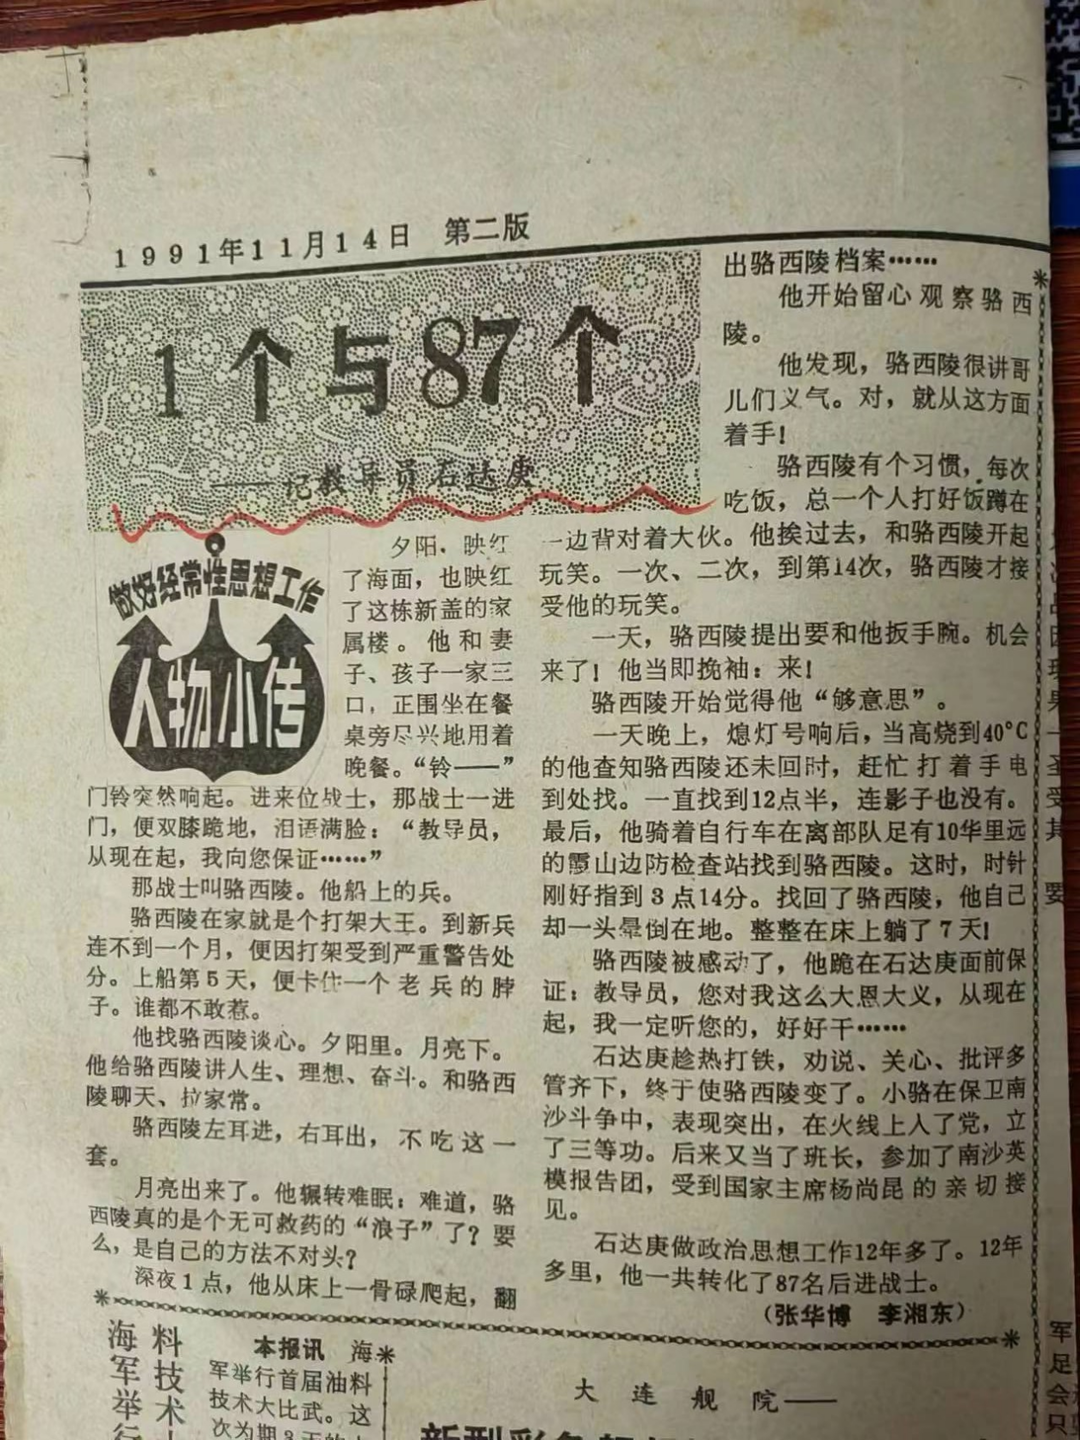 1991年11月14日 第二版
1个与87个
——记教导员石达庚
做好经常性思想工作
人物小传
夕阳，映红
了海面，也映红
了这栋新盖的家
属楼。他和妻
子、孩子一家三
口，正围坐在餐
桌旁尽兴地用着
晚餐。“铃——”
门铃突然响起。进来位战士，那战士一进
门，便双膝跪地，泪语满脸：“教导员，
从现在起，我向您保证……”
那战士叫骆西陵。他船上的兵。
骆西陵在家就是个打架大王。到新兵
连不到一个月，便因打架受到严重警告处
分。上船第5天，便卡住一个老兵的脖
子。谁都不敢惹。
他找骆西陵谈心。夕阳里。月亮下。
他给骆西陵讲人生、理想、奋斗。和骆西
陵聊天、拉家常。
骆西陵左耳进，右耳出，不吃这一
套。
月亮出来了。他辗转难眠：难道，骆
西陵真的是个无可救药的“浪子”了？要
么，是自己的方法不对头？
深夜1点，他从床上一骨碌爬起，翻
出骆西陵档案……
他开始留心观察骆西
陵。
他发现，骆西陵很讲哥
儿们义气。对，就从这方面
着手！
骆西陵有个习惯，每次
吃饭，总一个人打好饭蹲在
一边背对着大伙。他挨过去，和骆西陵开起
玩笑。一次、二次，到第14次，骆西陵才接
受他的玩笑。
一天，骆西陵提出要和他扳手腕。机会
来了！他当即挽袖：来！
骆西陵开始觉得他“够意思”。
一天晚上，熄灯号响后，当高烧到40°C
的他查知骆西陵还未回时，赶忙打着手电
到处找。一直找到12点半，连影子也没有。
最后，他骑着自行车在离部队足有10华里远
的霞山边防检查站找到骆西陵。这时，时针
刚好指到3点14分。找回了骆西陵，他自己
却一头晕倒在地。整整在床上躺了7天！
骆西陵被感动了，他跪在石达庚面前保
证：教导员，您对我这么大恩大义，从现在
起，我一定听您的，好好干……
石达庚趁热打铁，劝说、关心、批评多
管齐下，终于使骆西陵变了。小骆在保卫南
沙斗争中，表现突出，在火线上入了党，立
了三等功。后来又当了班长，参加了南沙英
模报告团，受到国家主席杨尚昆的亲切接
见。
石达庚做政治思想工作12年多了。12年
多里，他一共转化了87名后进战士。
（张华博 李湘东）
海军举行
料技术
本报讯 海
军举行首届油料
技术大比武。这
次为期3天的
大连舰院——
新型彩色
要
军
足
会
只